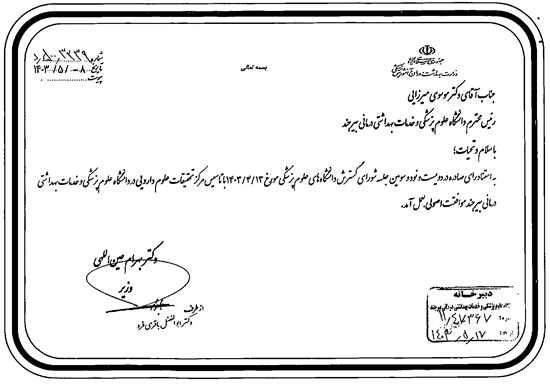 بسمه تعالی
جمهوری اسلامی ایران
وزارت بهداشت، درمان و آموزش پزشکی
شماره ۵۰۰/۳۲۳۹/د
تاریخ ۱۴۰۳/۰۵/۰۸
پیوست
جناب آقای دکتر موسوی میرزایی
رئیس محترم دانشگاه علوم پزشکی و خدمات بهداشتی درمانی بیرجند
با سلام و تحیات؛
به استناد رای صادره در دویست و نود و سومین جلسه شورای گسترش دانشگاه های علوم پزشکی مورخ ۱۴۰۳/۴/۱۳ با تاسیس مرکز تحقیقات علوم دارویی در دانشگاه علوم پزشکی و خدمات بهداشتی
درمانی بیرجند موافقت اصولی بعمل آمد.
دکتر بهرام عین اللهی
وزیر
از طرف
دکتر ابوالفضل باقری فرد
دبیرخانه
دانشگاه علوم پزشکی و خدمات بهداشتی درمانی بیرجند